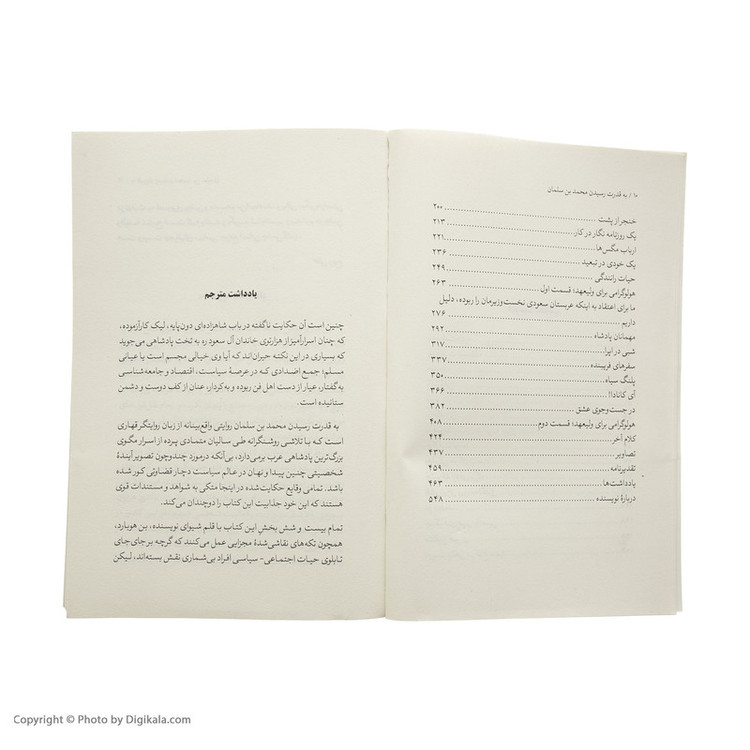 ۱۰ / به قدرت رسیدن محمد بن سلمان
خنجر از پشت ۲۰۰
یک روزنامه نگار در کار ۲۱۳
ارباب مگس‌ها ۲۲۱
یک خودی در تبعید ۲۳۶
حیات رانندگی ۲۴۹
هولوگرامی برای ولیعهد: قسمت اول ۲۶۳
ما برای اعتقاد به اینکه عربستان سعودی نخست‌وزیرمان را ربوده، دلیل
داریم ۲۷۶
مهمانان پادشاه ۲۹۲
شبی در اپرا ۳۱۷
سفرهای فریبنده ۳۳۷
پلنگ سیاه ۳۵۰
آی کانادا!! ۳۶۶
در جست وجوی عشق ۳۸۲
هولوگرامی برای ولیعهد: قسمت دوم ۴۰۸
کلام آخر ۴۲۴
تصاویر ۴۳۷
تقدیرنامه ۴۵۹
یادداشت‌ها ۴۶۳
دربارهٔ نویسنده ۵۴۸
یادداشت مترجم
چنین است آن حکایت ناگفته در باب شاهزاده‌ای دون‌پایه، لیک کارآزموده،
که چنان اسرارآمیز از هزارتوی خاندان آل سعود ره به تخت پادشاهی می‌جوید
که بسیاری در این نکته حیران‌اند که آیا وی خیالی مجسم است یا عیانی
مسلم؛ جمع اضدادی که در عرصهٔ سیاست، اقتصاد و جامعه‌شناسی
به‌گفتار، عیار از دست اهل فن ربوده و به‌کردار، عنان از کف دوست و دشمن
ستانیده است.
به قدرت رسیدن محمد بن سلمان روایتی واقع‌بینانه از زبان روایتگر قهاری
است که با تلاشی روشنگرانه طی سالیان متمادی پرده از اسرار مگوی
بزرگ‌ترین پادشاهی عرب برمی‌دارد، بی‌آنکه درمورد چندوچون تصویر آیندهٔ
شخصیتی چنین پیدا و نهان در عالم سیاست دچار قضاوتی کور شده
باشد. تمامی وقایع حکایت‌شده در اینجا متکی به شواهد و مستندات قوی
هستند که این خود جذابیت این کتاب را دوچندان می‌کند.
تمام بیست و شش بخشِ این کتاب با قلم شیوای نویسنده، بن هوبارد،
همچون تکه‌های نقاشی‌شدهٔ مجزایی عمل می‌کنند که گرچه بر جای جای
تابلوی حیات اجتماعی- سیاسی افراد بی‌شماری نقش بسته‌اند، لیکن
Copyright © Photo by Digikala.com